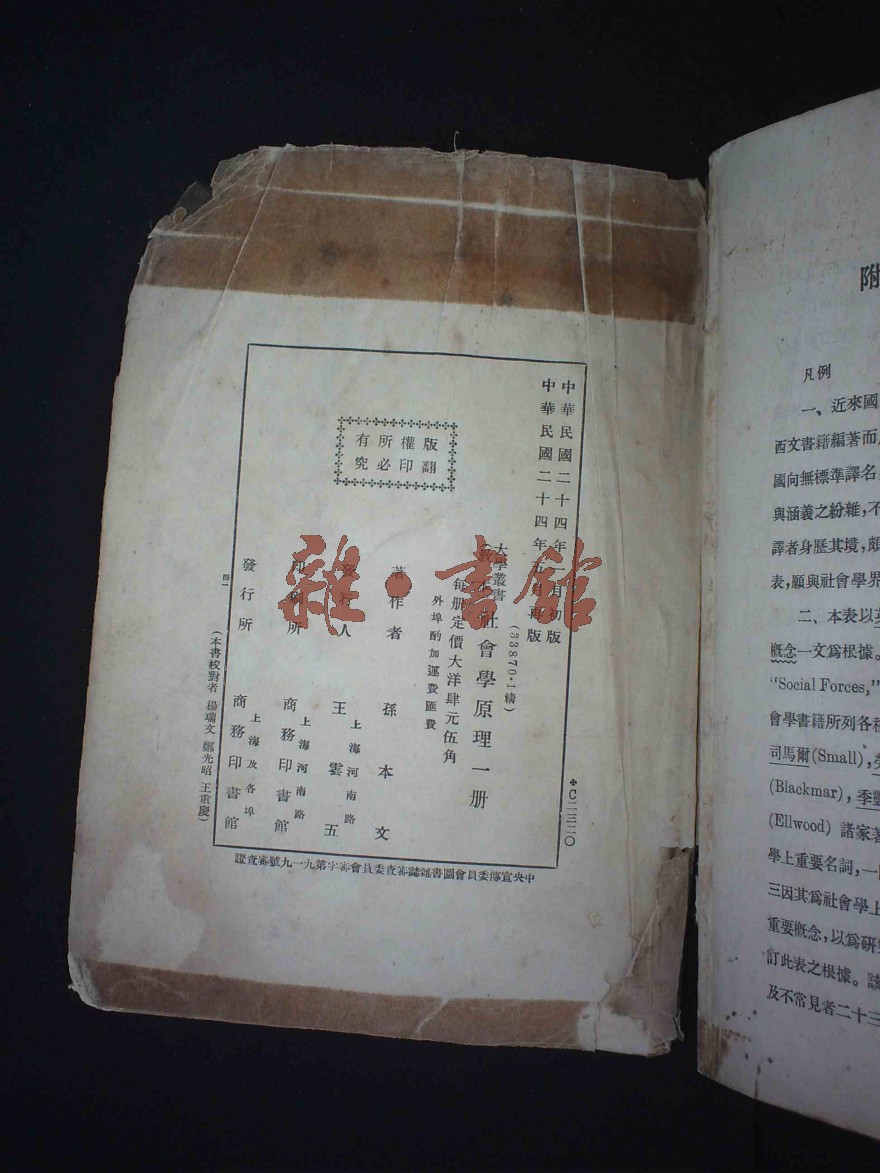 中華民國二十四年一月初版
中華民國二十四年五月再版
C二三二〇
(33870·1精)
大學叢書
(教本)
社會學原理一册
每册定價大洋肆元伍角
外埠酌加運費匯費
版權所有
翻印必究
著作者 孫本文
發行人 王雲五
上海河南路
印刷所 商務印書館
上海河南路
發行所 商務印書館
上海及各埠
四一
(本書校對者 楊瑞文 鄭光昭 王重慶)
中央宣傳委員會圖書雜誌審查委員會審字第九一九號審查證
雜·書館
附
凡例
一、近來國
西文書籍編著而
國向無標準譯名
與涵義之紛雜,不
譯者身歷其境,頗
表,願與社會學界
二、本表以
概念一文爲根據。
"Social Forces,"
會學書籍所列各種
司馬爾(Small),
(Blackmar),季
(Ellwood) 諸家著
學上重要名詞,一
三因其爲社會學上
重要概念,以爲研
訂此表之根據。該
及不常見者二十三